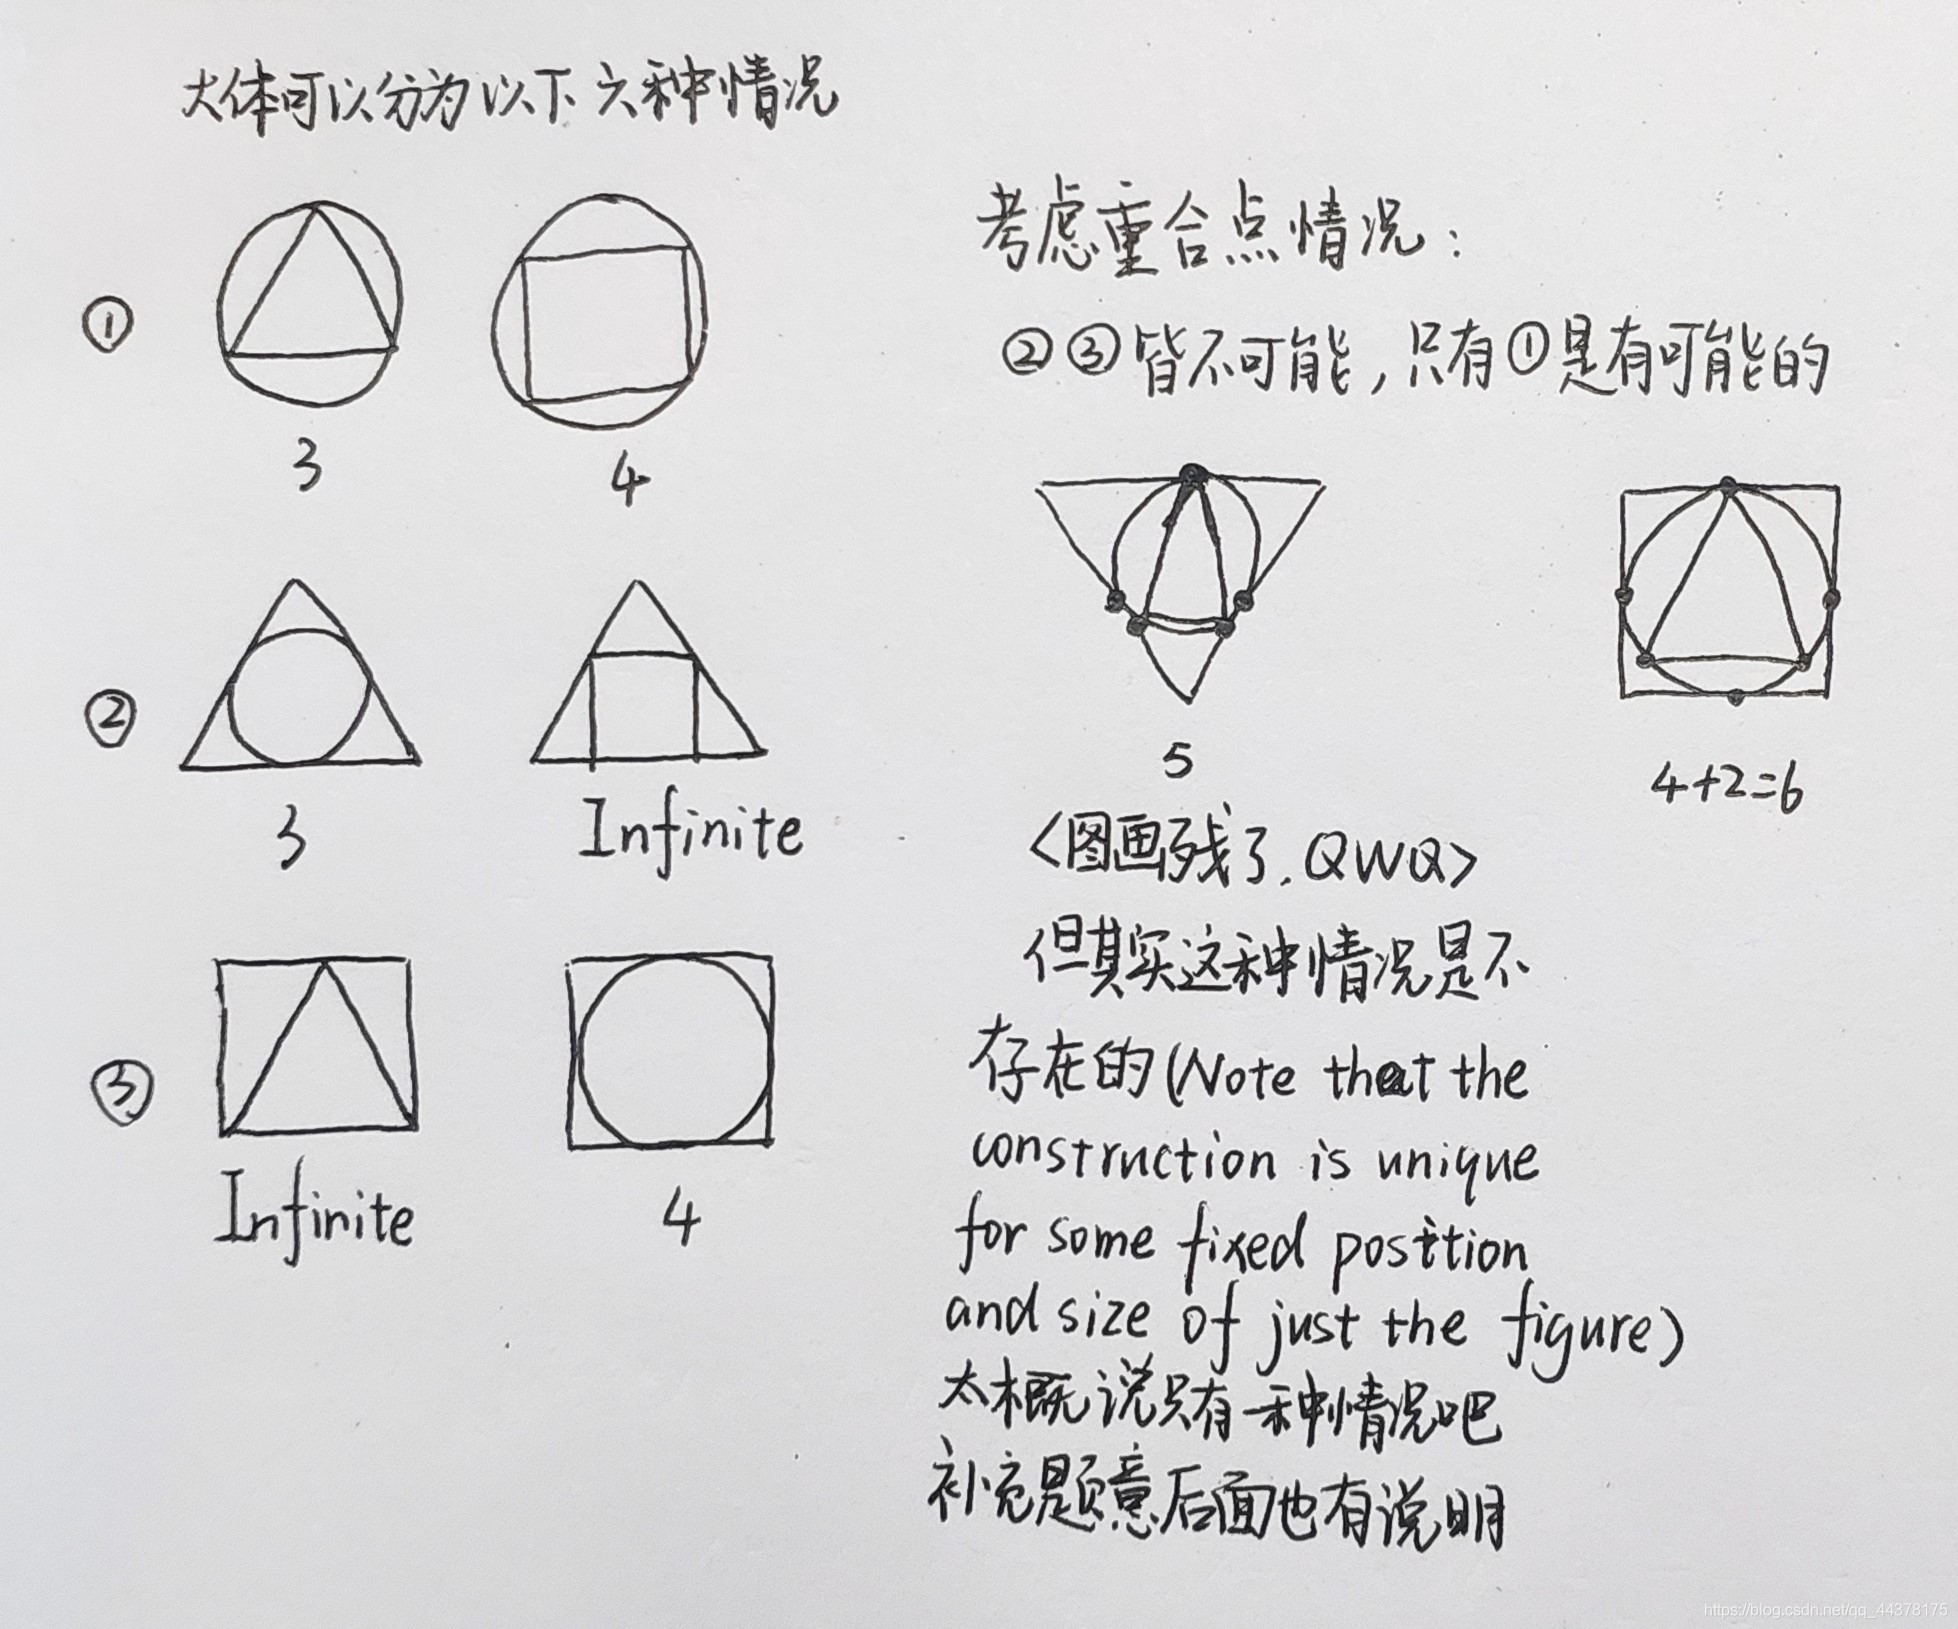 大体可以分为以下六种情况
①
3
4
②
3
Infinite
③
Infinite
4
考虑重合点情况：
②③皆不可能，只有①是有可能的
5
4+2=6
<图画残了.QWQ>
但其实这种情况是不
存在的(Note that the
construction is unique
for some fixed position
and size of just the figure)
太概说只有一种情况吧
补充题意后面也有说明
https://blog.csdn.net/qq_44378175